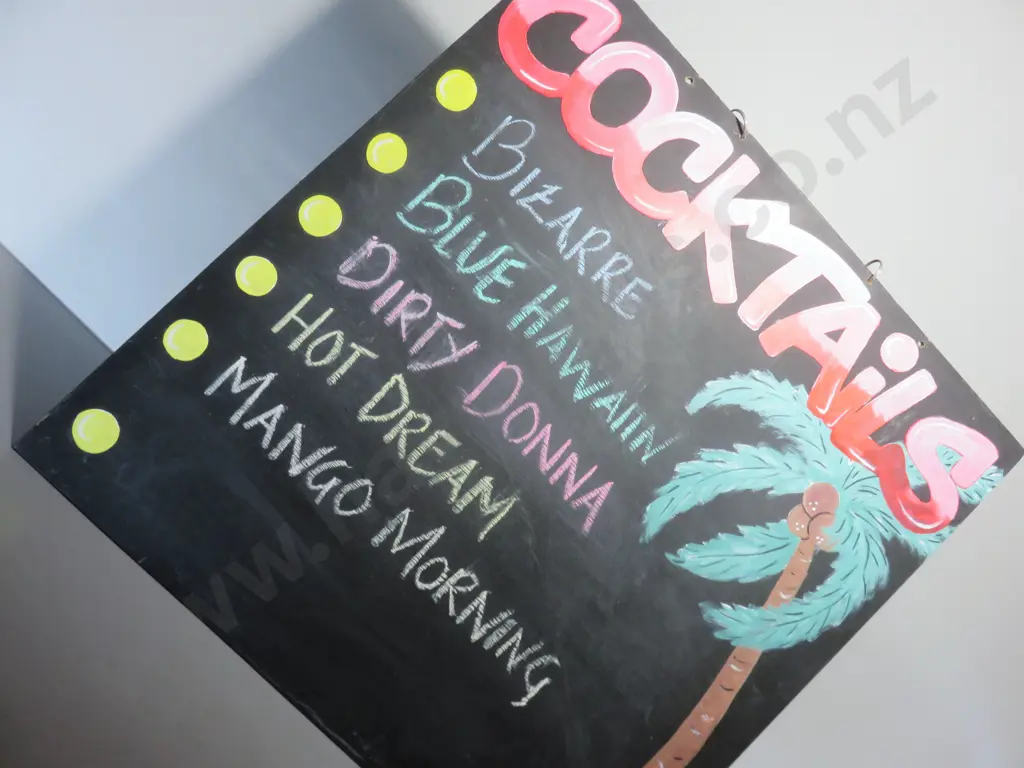 COCKTAiLS
BIZARRE
BLUE HAWAIIN
DIRTY DONNA
HOT DREAM
MANGO MORNING
.co.nz